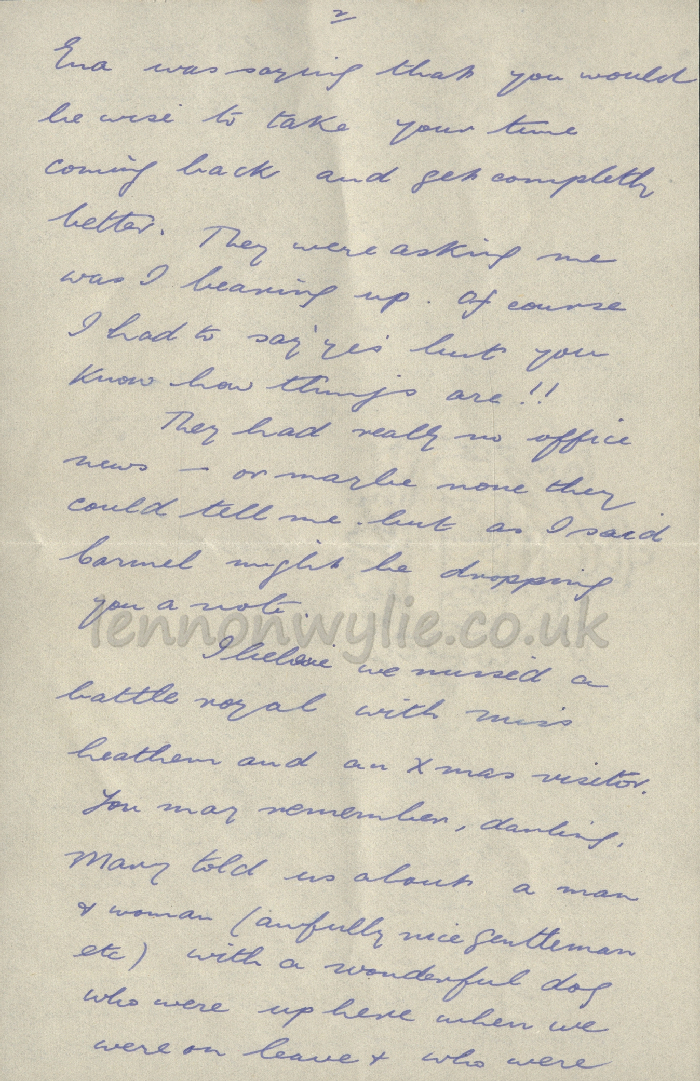 2
Ena was saying that you would
be wise to take your time
coming back and get completly
better. They were asking me
was I bearing up. Of course
I had to say 'yes' but you
know how things are!!
They had really no office
news — or maybe none they
could tell me. but as I said
Carmel might be dropping
you a note.
lennonwylie.co.uk
I believe we missed a
battle royal with miss
heathem and an Xmas visitor.
You may remember, darling,
Mary told us about a man
& woman (awfully nice gentleman
etc) with a wonderful dog
who were up here when we
were on leave & who were